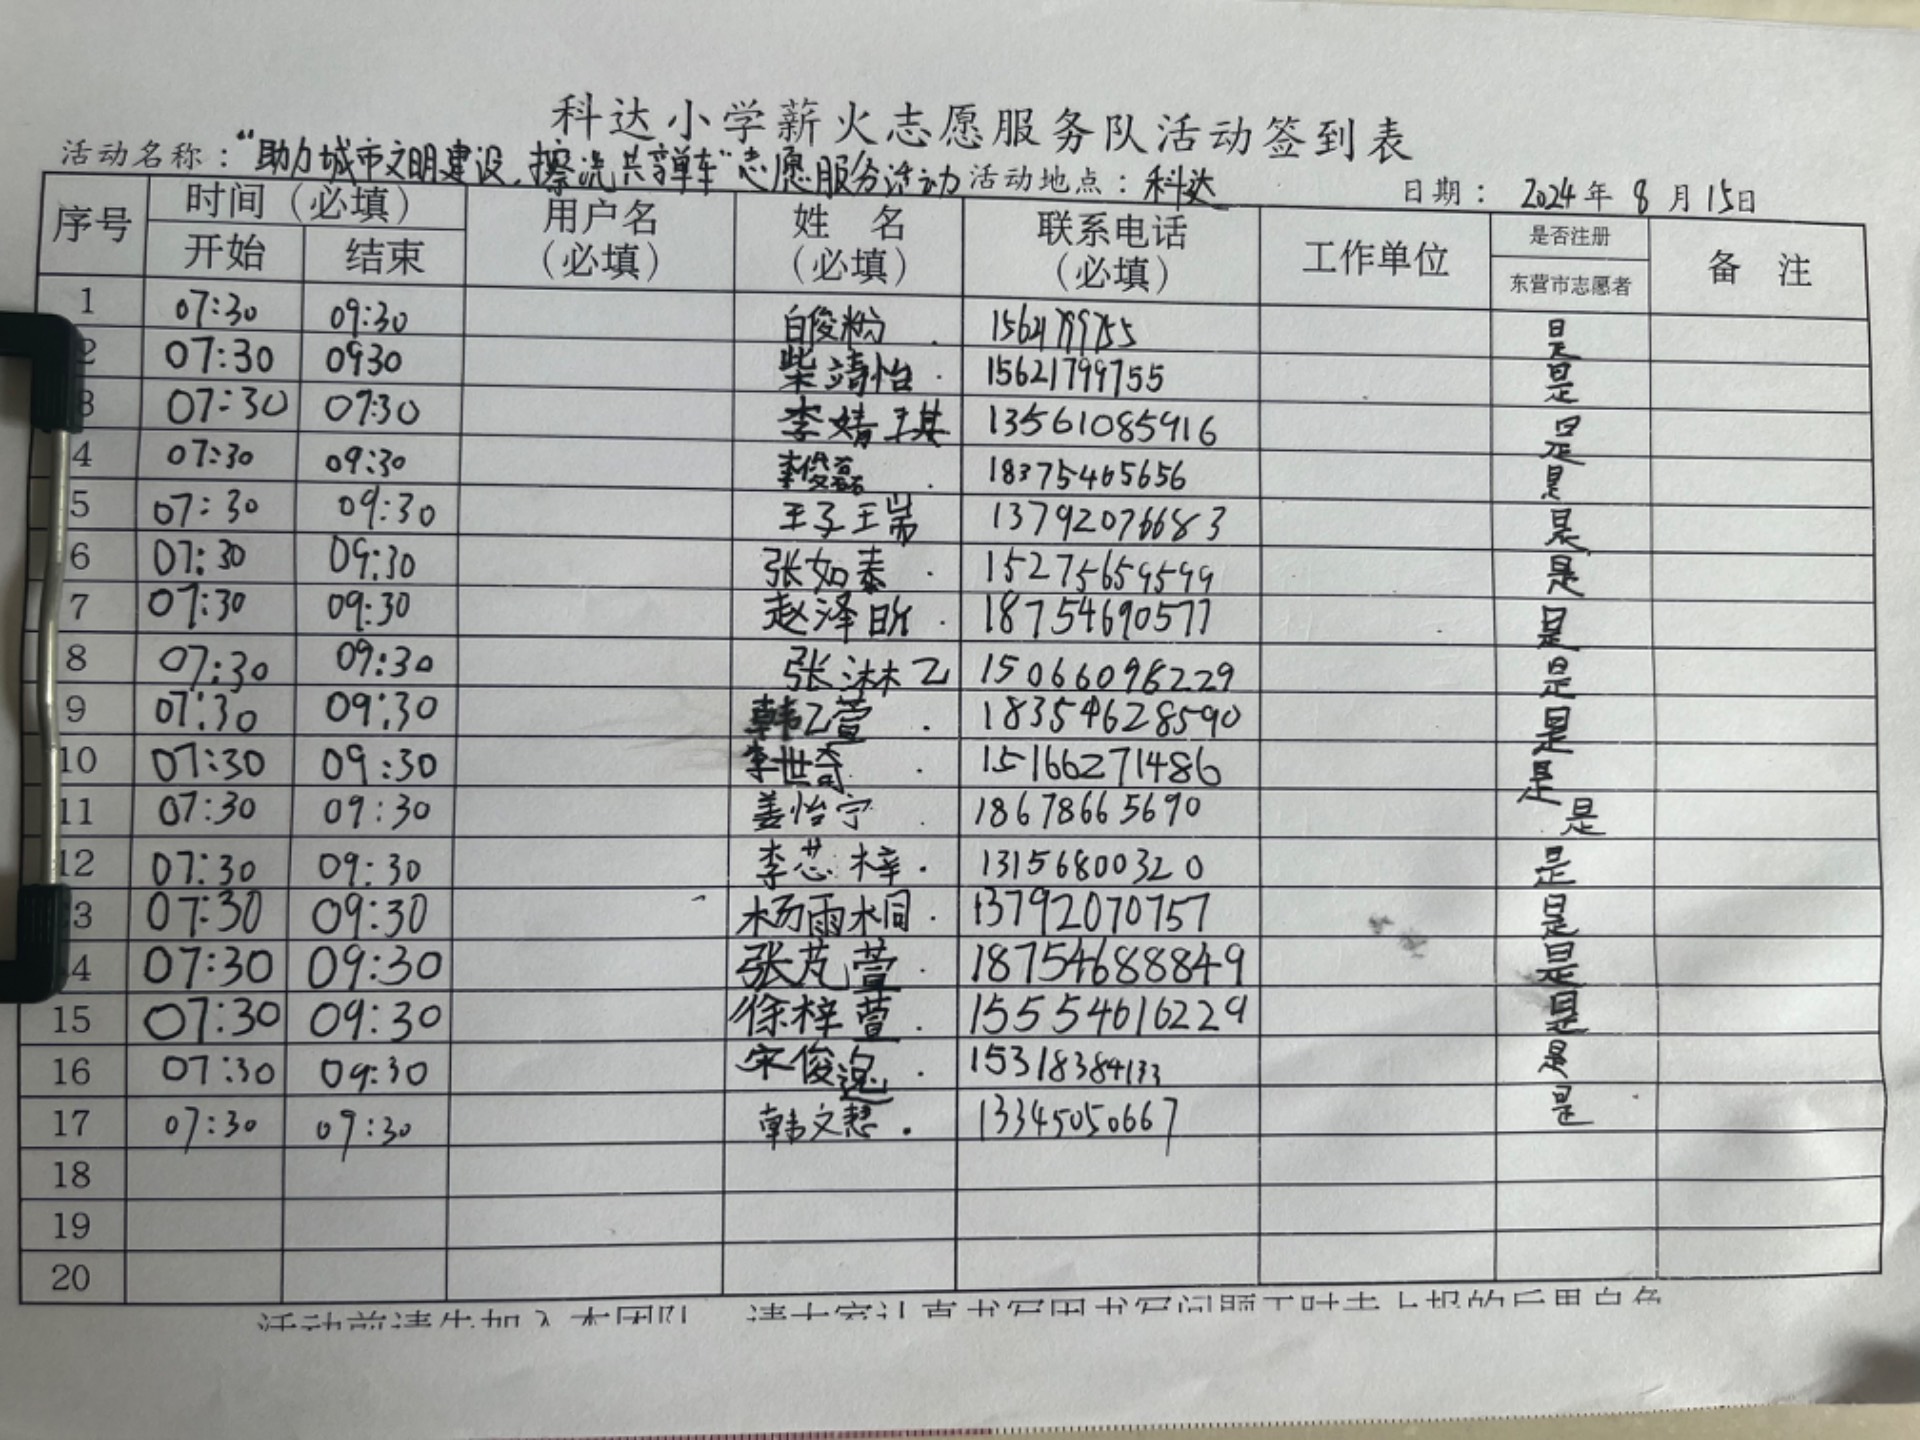 科达小学薪火志愿服务队活动签到表
活动名称：“助力城市文明建设，擦洗共享单车”志愿服务活动 活动地点：科达 日期： 2024年 8 月 15日
序号 时间（必填） 用户名（必填） 姓 名（必填） 联系电话（必填） 工作单位 是否注册 备 注
开始 结束 东营市志愿者
1 07:30 09:30 白俊粉 15621799755 是
2 07:30 0930 柴靖怡 15621799755 是
3 07:30 07:30 李婧琪 13561085916 是
4 07:30 09:30 李俊磊 18375465656 是
5 07:30 09:30 王子瑞 13792076683 是
6 07:30 09:30 张如泰 15275659599 是
7 07:30 09:30 赵泽昕 18754690577 是
8 07:30 09:30 张淋乙 15066098229 是
9 07:30 09:30 韩乙萱 18354628590 是
10 07:30 09:30 李世奇 15166271486 是
11 07:30 09:30 姜怡宁 18678665690 是
12 07:30 09:30 李芯梓 13156800320 是
13 07:30 09:30 杨雨桐 13792070757 是
14 07:30 09:30 张芃萱 18754688849 是
15 07:30 09:30 徐梓萱 15554616229 是
16 07:30 09:30 宋俊逸 15318384133 是
17 07:30 09:30 韩文慧 13345050667 是
18
19
20